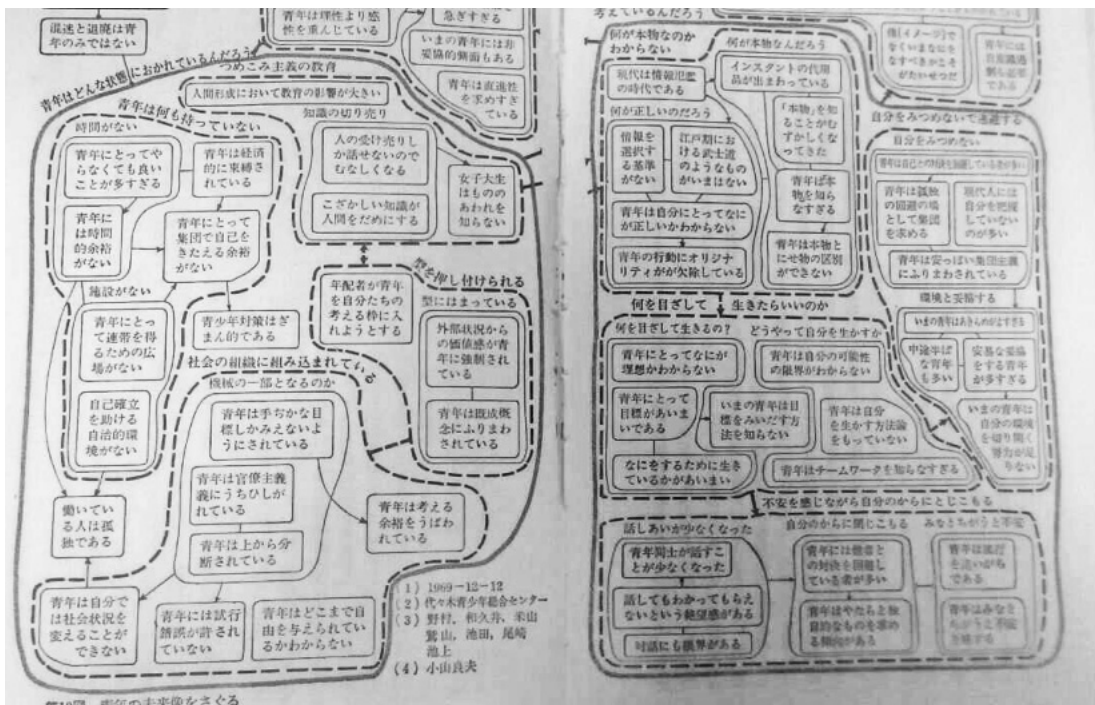 混迷と退廃は青
年のみではない
青年は理性より感
性を重んじている
急ぎすぎる
いまの青年には非
妥協的側面もある
青年は直進性
を求めすぎ
ている
青年はどんな状態におかれているんだろう
つめこみ主義の教育
人間形成において教育の影響が大きい
知識の切り売り
人の受け売りし
か話せないので
むなしくなる
こざかしい知識が
人間をだめにする
女子大生
はものの
あわれを
知らない
青年は何も持っていない
時間がない
青年にとってや
らなくても良い
ことが多すぎる
青年は経済
的に束縛さ
れている
青年に
は時間
的余裕
がない
青年にとって
集団で自己を
きたえる余裕
がない
施設がない
青年にとっ
て連帯を得
るための広
場がない
自己確立
を助ける
自治的環
境がない
青少年対策はぎ
まん的である
型を押し付けられる
年配者が青年
を自分たちの
考える枠に入
れようとする
型にはまっている
外部状況から
の価値感が青
年に強制され
ている
青年は既成概
念にふりまわ
されている
社会の組織に組み込まれている
機械の一部となるのか
青年は手ぢかな目
標しかみえないよ
うにされている
青年は官僚主義
義にうちひしが
れている
青年は上から分
断されている
青年は考える
余裕をうばわ
れている
働いてい
る人は孤
独である
青年は自分で
は社会状況を
変えることが
できない
青年には試行
錯誤が許され
ていない
青年はどこまで自
由を与えられてい
るかわからない
(1) 1969-12-12
(2) 代々木青少年総合センター
(3) 野村, 和久井, 米山
鷲山, 池田, 尾崎
池上
(4) 小山良夫
青年の未来像をさぐる
考えているんだろう
何が本物なのか
わからない
現代は情報氾濫
の時代である
何が本物なんだろう
インスタントの代用
品が出まわっている
「本物」を知
ることがむ
ずかしくな
ってきた
何が正しいのだろう
情報を
選択す
る基準
がない
江戸期にお
ける武士道
のようなもの
がいまはない
青年は本
物を知ら
なすぎる
青年は自分にとってなに
が正しいかわからない
青年の行動にオリジナ
リティがが欠除している
青年は本物と
にせ物の区別
ができない
でなくいまなにを
なすべきかこそ
がたいせつだ
青年には
である
自分をみつめないで逃避する
自分をみつめない
青年は孤独
の回避の場
として集団
を求める
現代人には
自分を把握
していない
のが多い
青年は安っぽい集団主義
にふりまわされている
環境と妥協する
いまの青年はあきらめがよすぎる
中途半ぱ
な青年
も多い
安易な妥協
をする青年
が多すぎる
いまの青年は
自分の環境
を切り開く
努力が足
りない
何を目ざして 生きたらいいのか
何を目ざして生きるの？
青年にとってなにが
理想かわからない
青年にとって
目標があいま
いである
いまの青年は目
標をみいだす方
法を知らない
なにをするために生き
ているかがあいまい
どうやって自分を生かすか
青年は自分の可能性
の限界がわからない
青年は自分
を生かす方法論
をもっていない
青年はチームワークを知らなすぎる
不安を感じながら自分のからにとじこもる
話しあいが少なくなった
青年同士が話すこ
とが少なくなった
話してもわかってもら
えないという絶望感がある
対話にも限界がある
自分のからに閉じこもる
青年には他者と
の対決を回避し
ている者が多い
青年はやたらと独
創的なものを求め
る傾向がある
みなとちがうと不安
青年は流行
を追いがち
である
青年はみなと
ちがうと不安
を感ずる